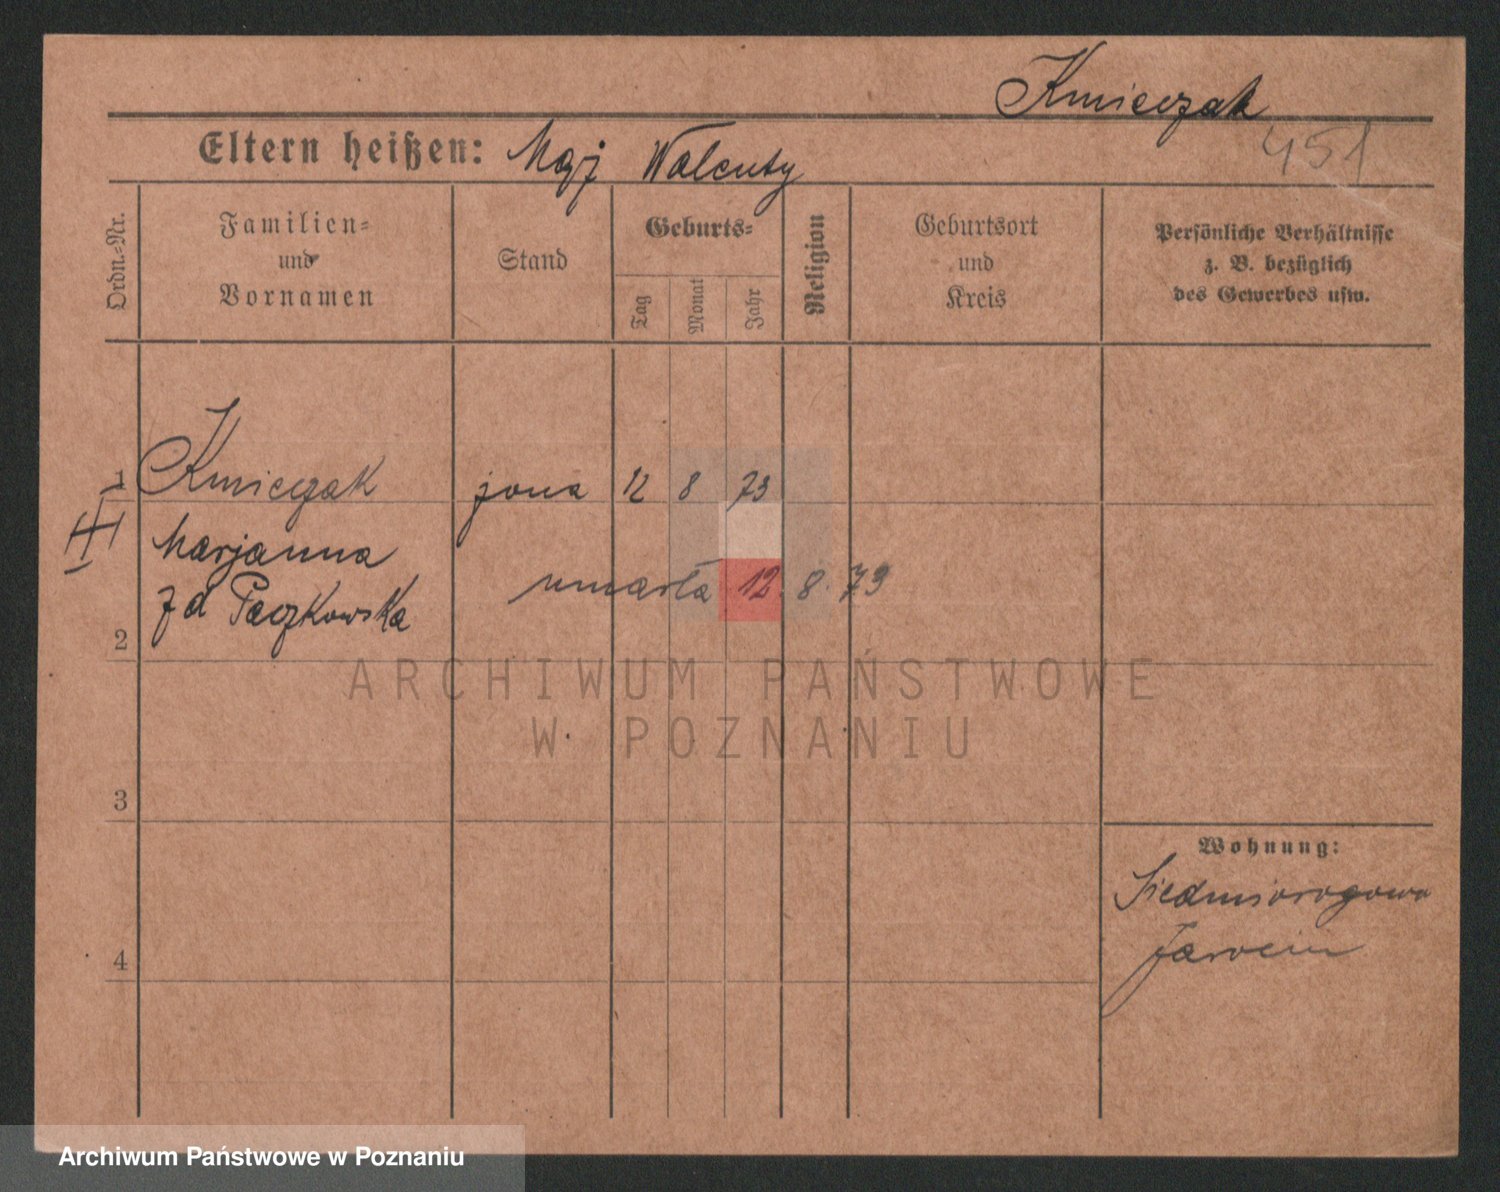 Kmieczak
451
Eltern heißen: Mąż Walenty
Ordn.-Nr.
Familien-
und
Vornamen
Stand
Geburts-
Tag
Monat
Jahr
Religion
Geburtsort
und
Kreis
Persönliche Verhältnisse
z. B. bezüglich
des Gewerbes usw.
1 Kmieczak żona 12 8 73
III
Marjanna
umarła 12. 8. 79
zd Paczkowska
2
ARCHIWUM PAŃSTWOWE
W POZNANIU
3
Wohnung:
Siedmiorogowo
Jarocin
4
Archiwum Państwowe w Poznaniu